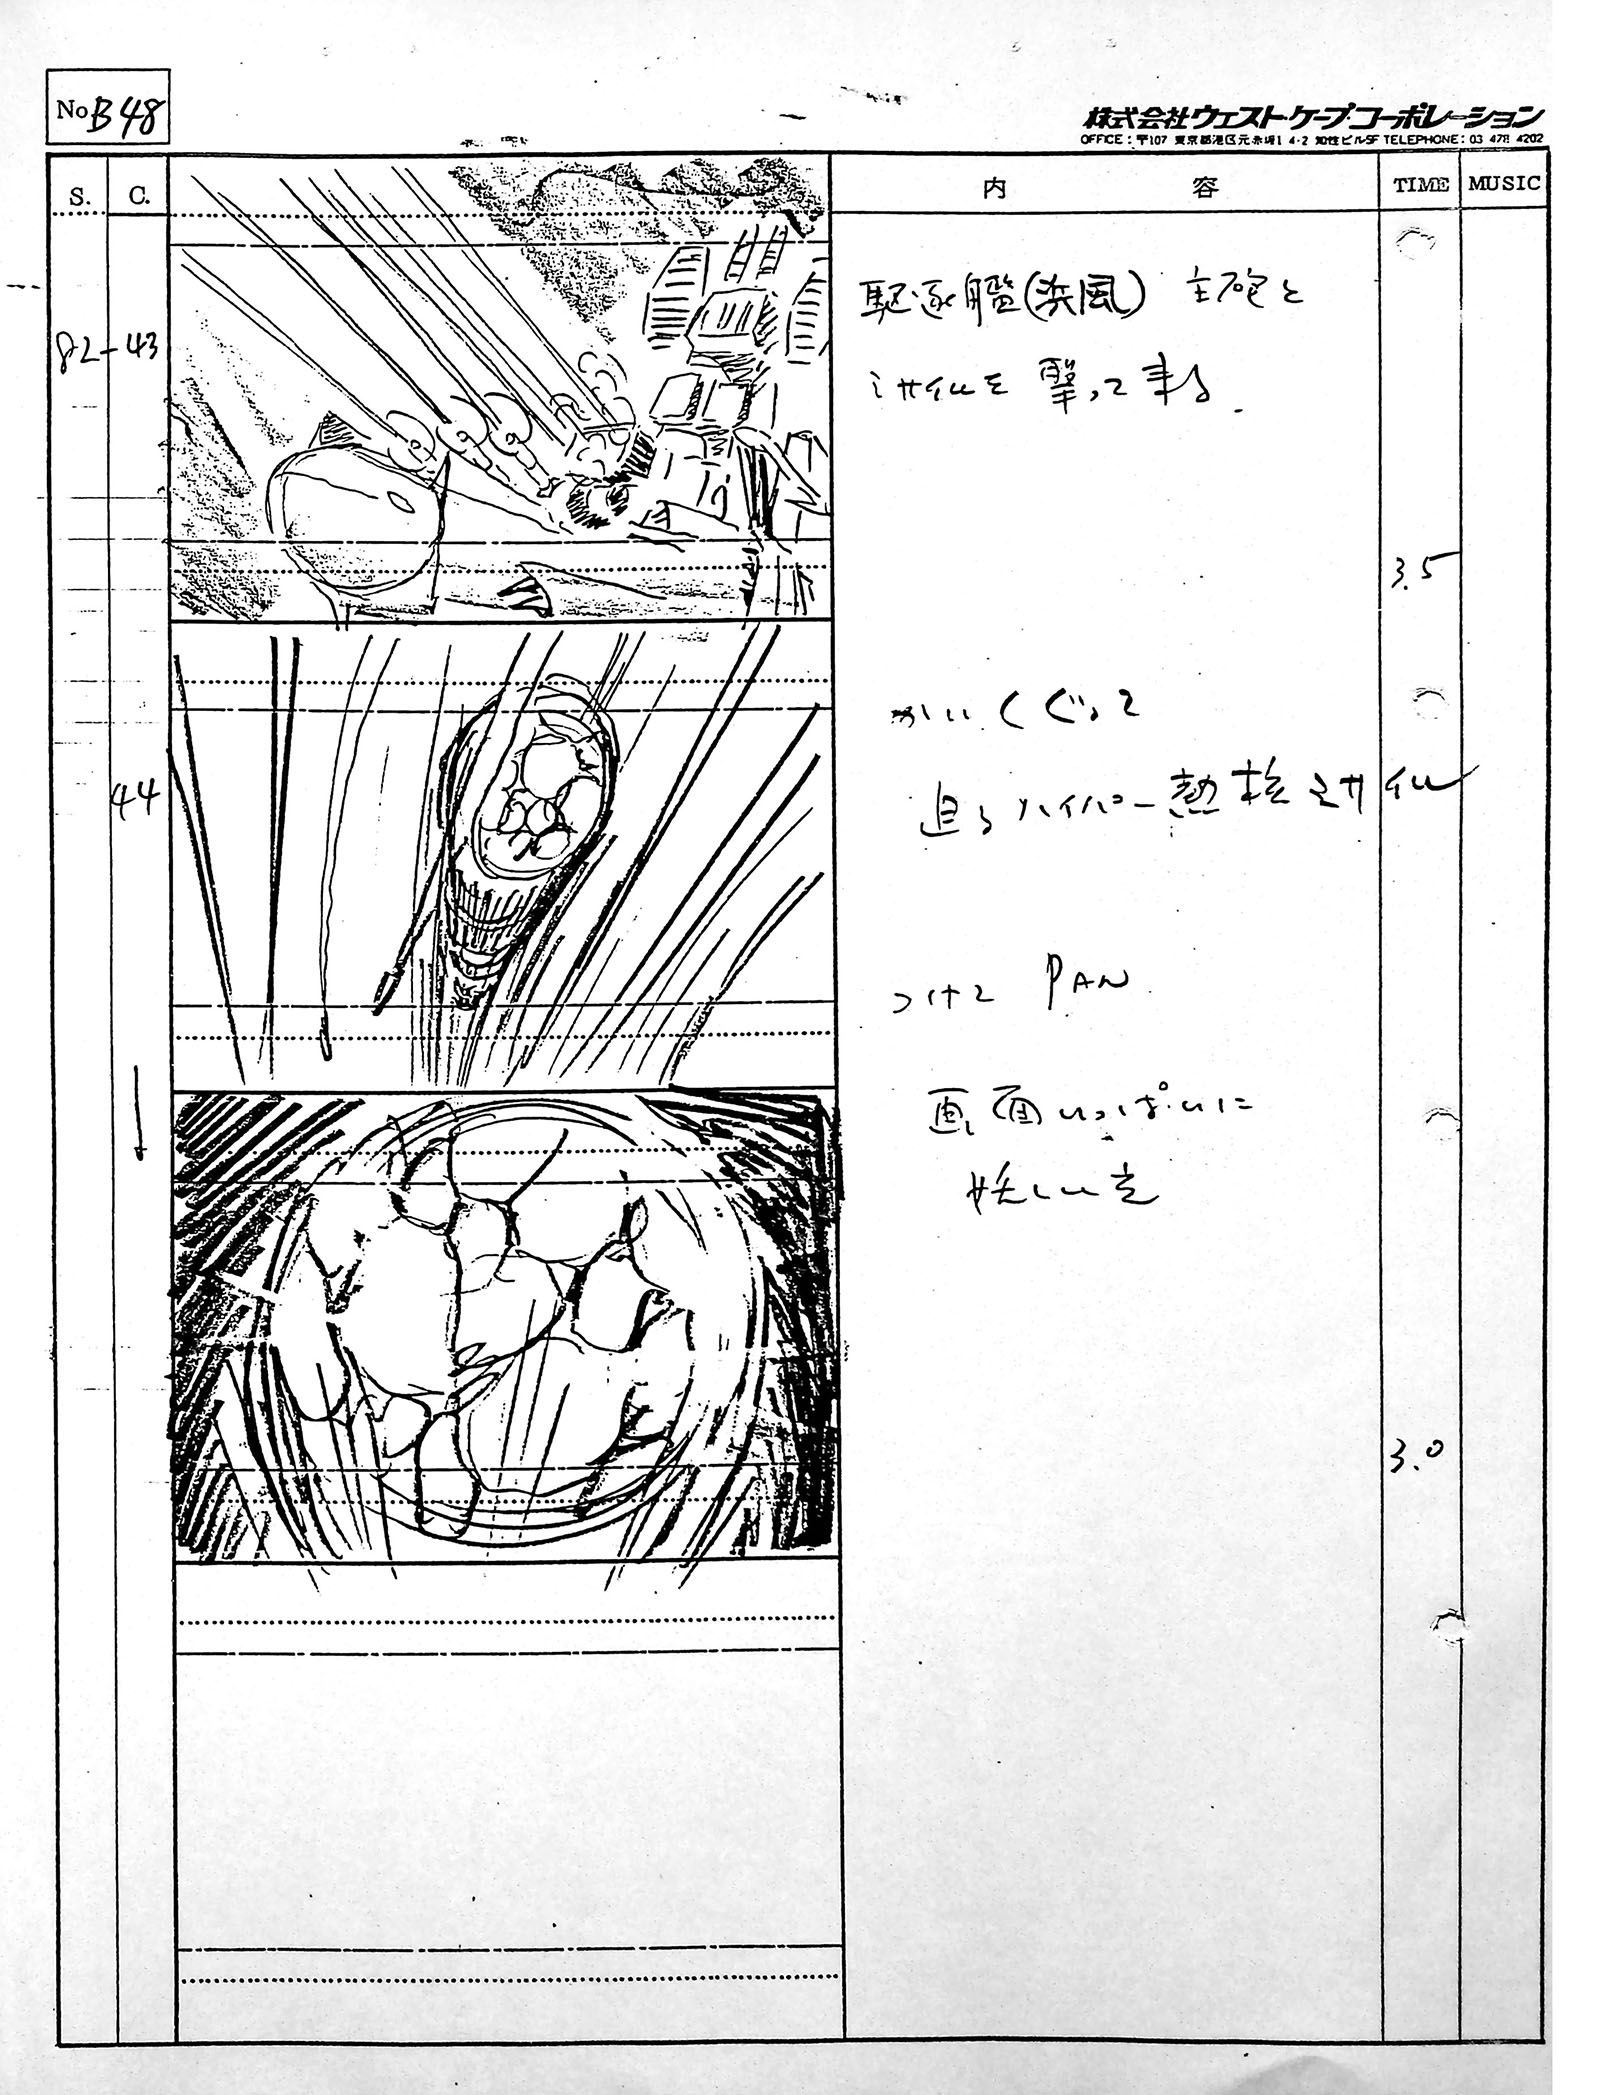 No B48
株式会社ウェスト・ケープ・コーポレーション
OFFICE:〒107 東京都港区元赤坂1 4-2 知性ビル5F TELEPHONE:03 478 4202
S. C. 内 容 TIME MUSIC
82-43
駆逐艦(浜風) 主砲と
ミサイルを撃って来る.
3.5
44
かいくぐって
迫るハイパー熱核ミサイル
つけて PAN
画面いっぱいに
妖しい
3.0